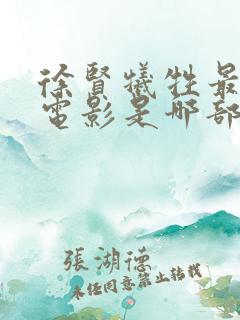 徐賢犧牲最
電影是哪部
張湖德
未經同意禁止轉載